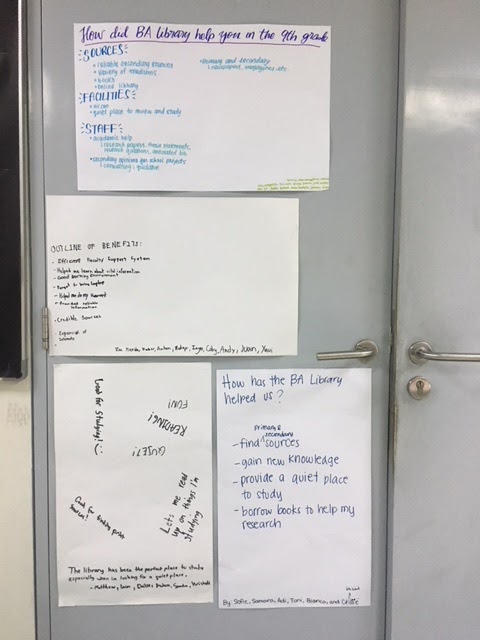 How did BA library help you in the 9th grade
SOURCES
• reliable secondary sources
• variety of mediums
• books
• online library
• primary and secondary
↳ newspapers, magazines etc.
FACILITIES
• aircon
• quiet place to review and study
STAFF
• academic help
↳ research papers, thesis statements,
research questions, annotated bib.
• secondary opinions for school projects
↳ consulting, guidance
OUTLINE OF BENEFITS:
- Efficient Faculty Support System
- Helped me learn about vital information
- Good learning Environment
- Helped me do my
- Provided reliable
information
- Credible Sources
- Expansion of
Andy, Juan, Xavi
Good for Studying! :)
FUN!
READING!
QUIET!
Good for finding
sources!
Lets me read
up on things I'm
studying
The library has been the perfect place to study
especially when im looking for a quiet place.
- Matthew,
How has the BA Library
helped us?
primary &
secondary
- find sources
- gain new knowledge
- provide a quiet place
to study
- borrow books to help my
research
By: Sofie, Samara, Adi, Toni, Bianca, and